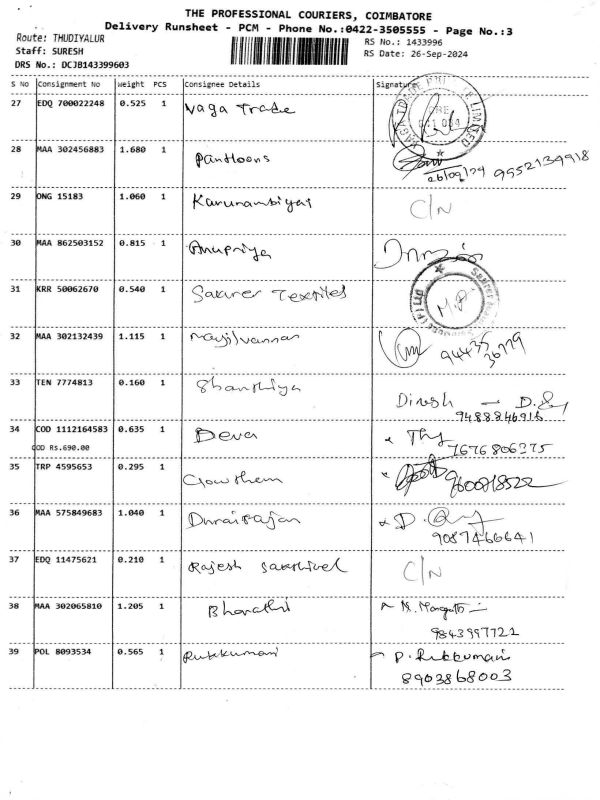 THE PROFESSIONAL COURIERS, COIMBATORE
Delivery Runsheet - PCM - Phone No.:0422-3505555 - Page No.:3
Route: THUDIYALUR
RS No.: 1433996
Staff: SURESH
RS Date: 26-Sep-2024
DRS No.: DCJB143399603
S No Consignment No Weight PCS Consignee Details Signature
27 EDQ 700022248 0.525 1 Naga Trade
28 MAA 302456883 1.680 1 Pantloons
26/09/24 9952139918
29 ONG 15183 1.060 1 Karunambigai C/N
30 MAA 862503152 0.815 1 Anupriya
31 KRR 50062670 0.540 1 Sakurer Textiles M.P.
32 MAA 302132439 1.115 1 Mayilvannan
94435 36779
33 TEN 7774813 0.160 1 Shanthiya
Dinesh - D.
9488846916
34 COD 1112164583 0.635 1 Deva
COD RS.690.00
7676806375
35 TRP 4595653 0.295 1 Gowthem
9600818522
36 MAA 575849683 1.040 1 Durairajan
9087466641
37 EDQ 11475621 0.210 1 Rajesh Sakthivel C/N
38 MAA 302065810 1.205 1 Bharathi
9843997721
39 POL 8093534 0.565 1 Rukkumani P. Rukkumani
8903868003